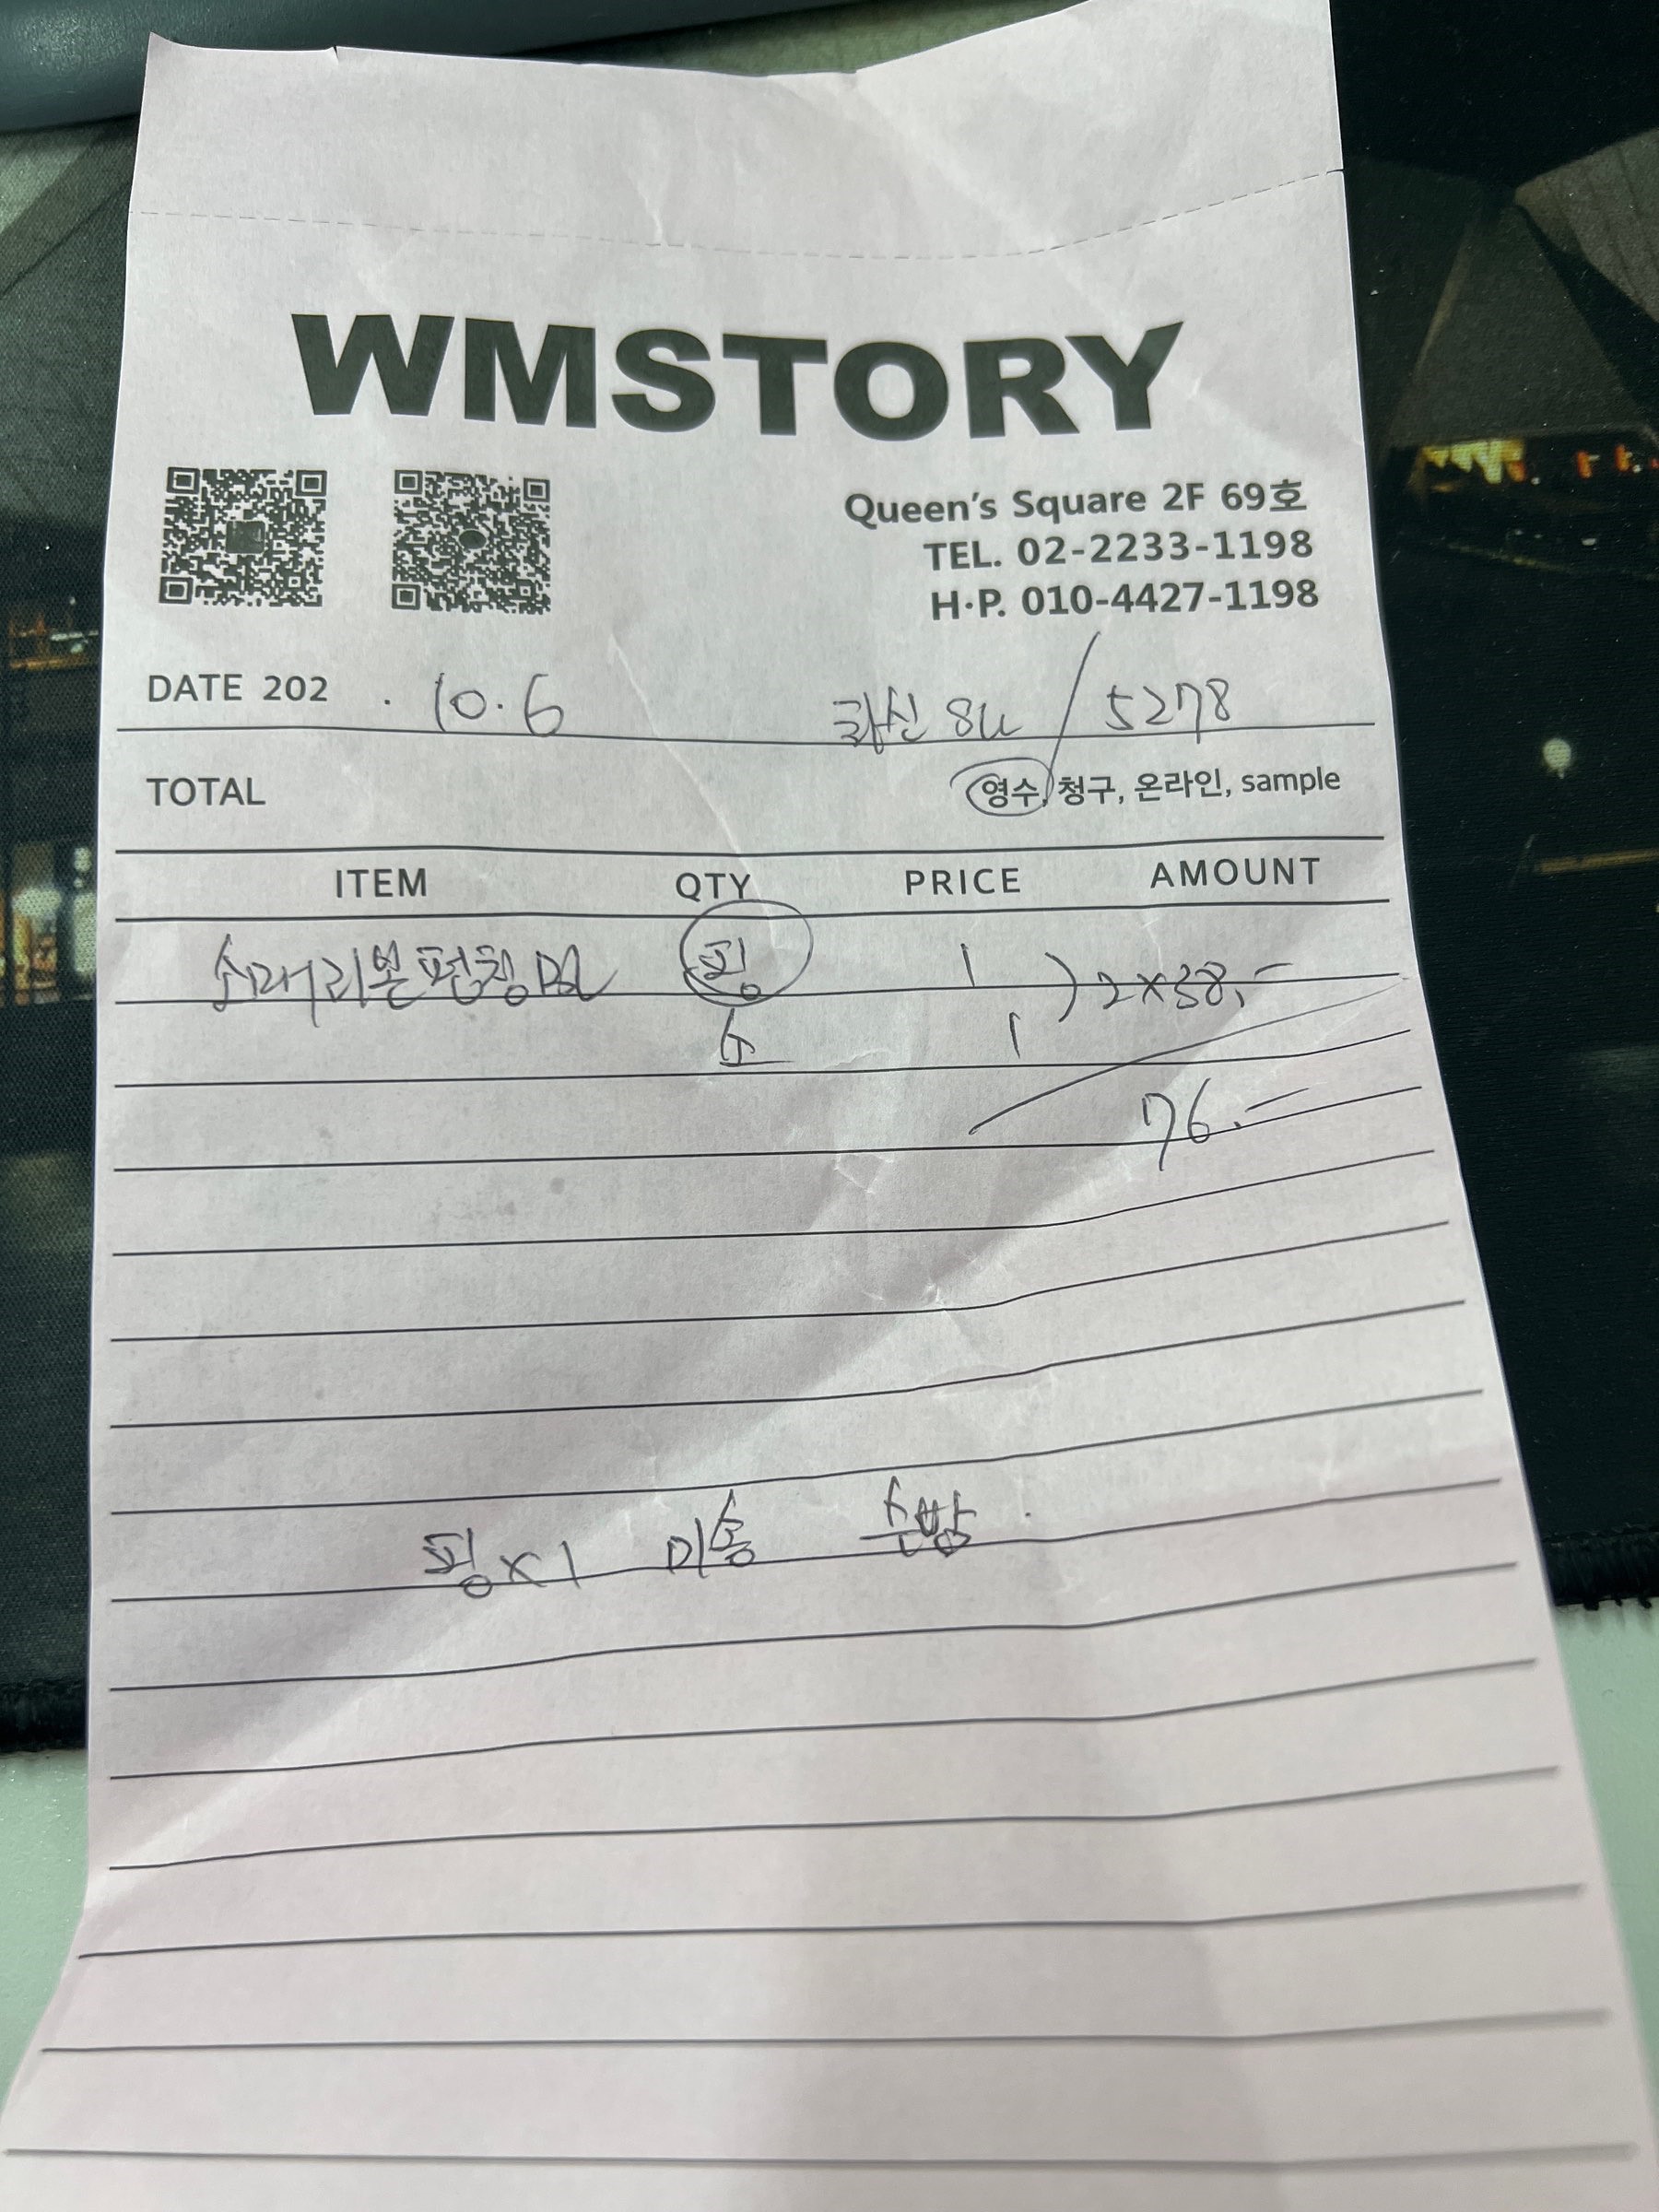 WMSTORY
Queen's Square 2F 69호
TEL. 02-2233-1198
H·P. 010-4427-1198
DATE 202 . 10.6 화신 8u / 5278
TOTAL 영수, 청구, 온라인, sample
ITEM QTY PRICE AMOUNT
소매리본펀칭BL 핑 1 ) 2x38.-
소 1
76.-
핑x1 미송 순방.